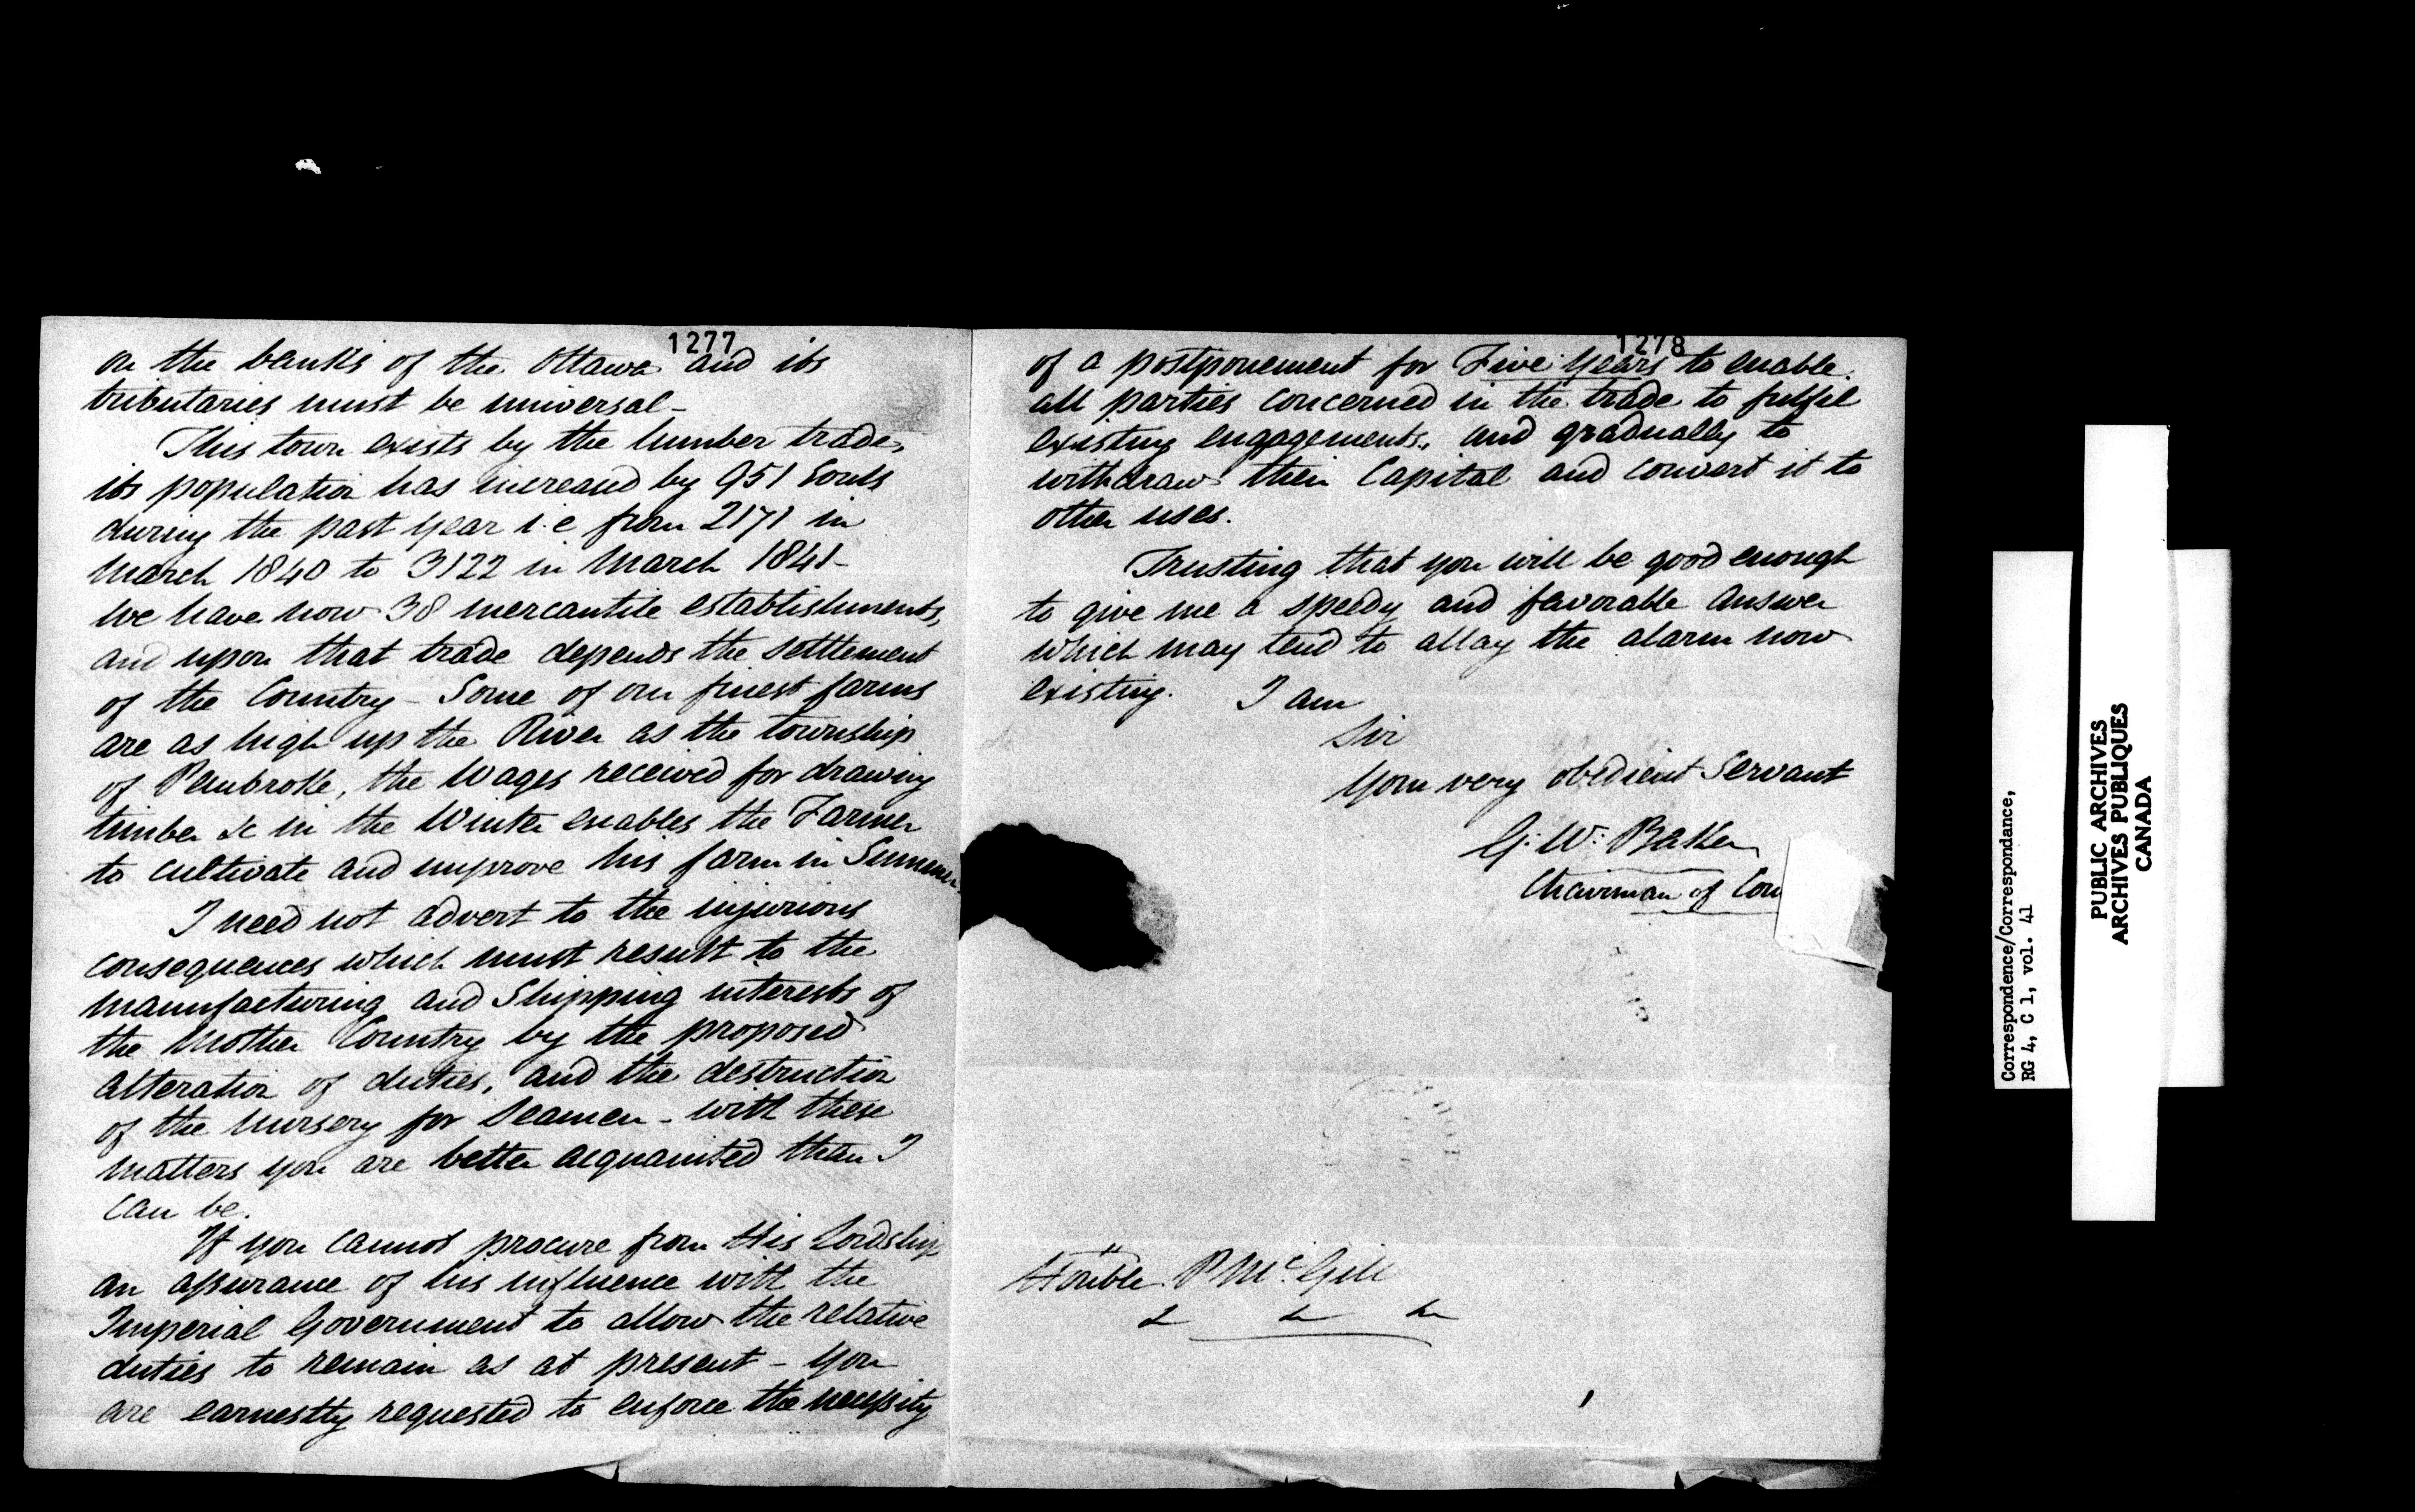 1277
on the banks of the Ottawa and its
tributaries must be universal -
This town exists by the lumber trade,
its population has increased by 951 Souls
during the past year i.e from 2171 in
March 1840 to 3122 in March 1841 -
We have now 38 mercantile establishments,
and upon that trade depends the settlement
of the Country - Some of our finest farms
are as high up the River as the township
of Pembroke, the Wages received for drawing
timber &c in the Winter enables the Farmer
to cultivate and improve his farm in Summer.
I need not advert to the injurious
consequences which must result to the
manufacturing and Shipping interests of
the Mother Country by the proposed
alteration of duties, and the destruction
of the nursery for Seamen - with these
matters you are better acquainted than I
can be.
If you cannot procure from His Lordship
an assurance of his influence with the
Imperial Government to allow the relative
duties to remain as at present - you
are earnestly requested to enforce the necessity
1278
of a postponement for Five Years to enable
all parties concerned in the trade to fulfil
existing engagements, and gradually to
withdraw their Capital and convert it to
other uses.
Trusting that you will be good enough
to give me a speedy and favorable answer
which may tend to allay the alarm now
existing. I am
Sir
Your very obedient Servant
G: W: Baker
Chairman of Com
Honble P McGill
&c &c &c
Correspondence/Correspondance,
RG 4, C 1, vol. 41
PUBLIC ARCHIVES
ARCHIVES PUBLIQUES
CANADA